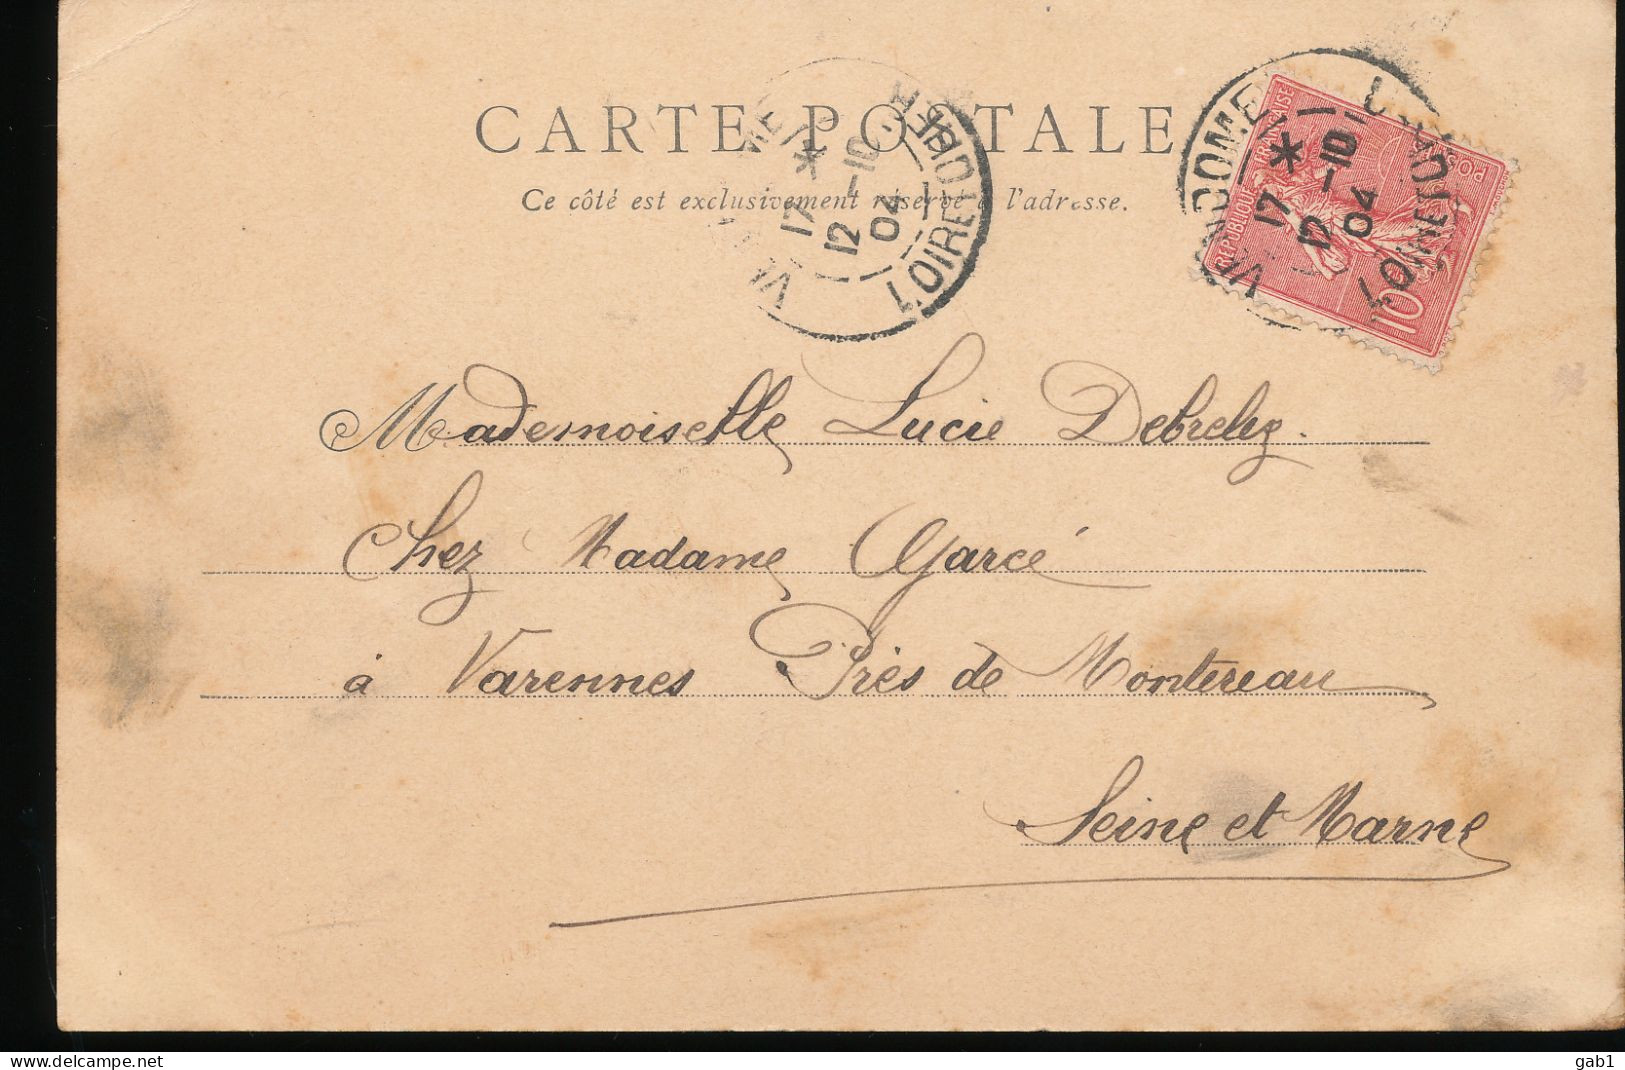 CARTE POSTALE
Ce côté est exclusivement réservé à l'adresse.
VENDOME
17 *
12 -10
04
LOIR ET CHER
VENDOME
17 *
12 -10
04
LOIR ET CHER
REPUBLIQUE FRANÇAISE
POSTES
10
Mademoiselle Lucie
Chez Madame Garcé
à Varennes Près de Montereau
Seine et Marne
gab1